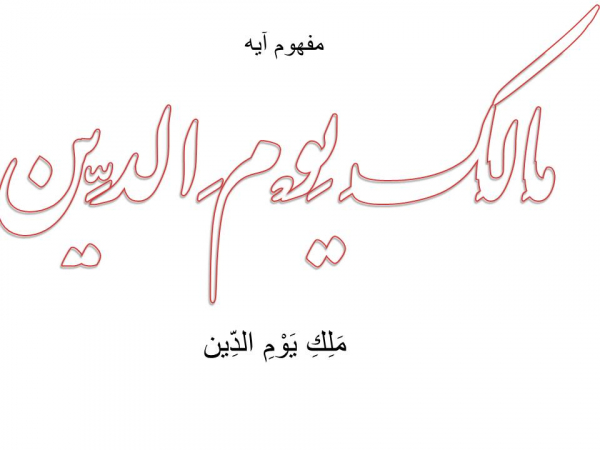 مفهوم آیه
مالک یوم الدین
مَلِكِ يَوْمِ الدِّين